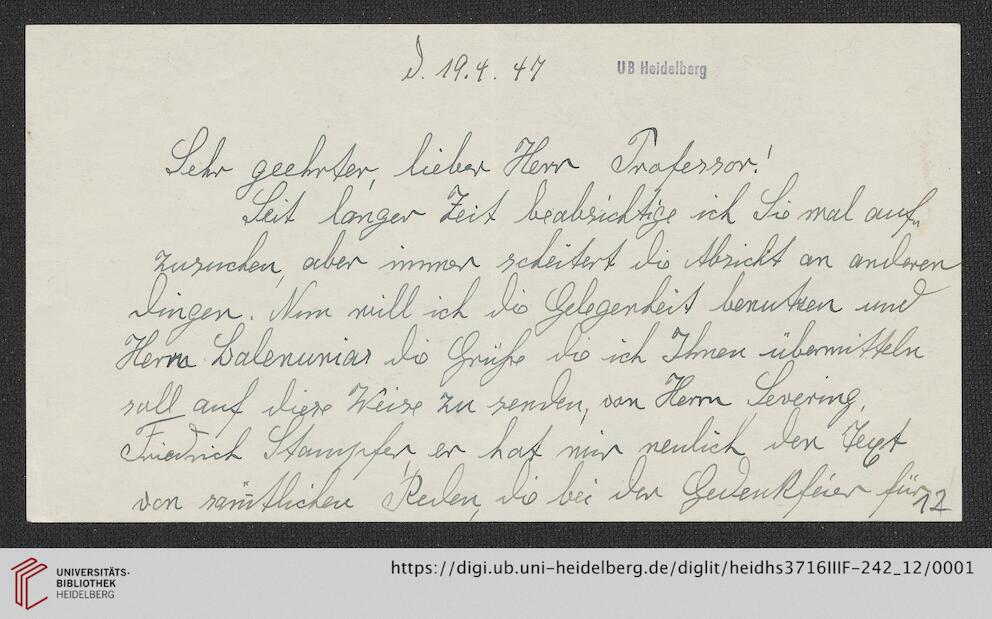 D. 19.4.47
UB Heidelberg
Sehr geehrter, lieber Herr Professor!
Seit langer Zeit beabsichtige ich Sie mal auf-
zusuchen, aber immer scheitert die Absicht an anderen
Dingen. Nun will ich die Gelegenheit benutzen und
Herrn die Grüße die ich Ihnen übermitteln
soll auf diese Weise zu senden, von Herrn Severing,
Friedrich Stampfer, er hat mir neulich den Text
von sämtlichen Reden, die bei der Gedenkfeier für
12
UNIVERSITÄTS-
BIBLIOTHEK
HEIDELBERG
https://digi.ub.uni-heidelberg.de/diglit/heidhs3716IIIF-242_12/0001